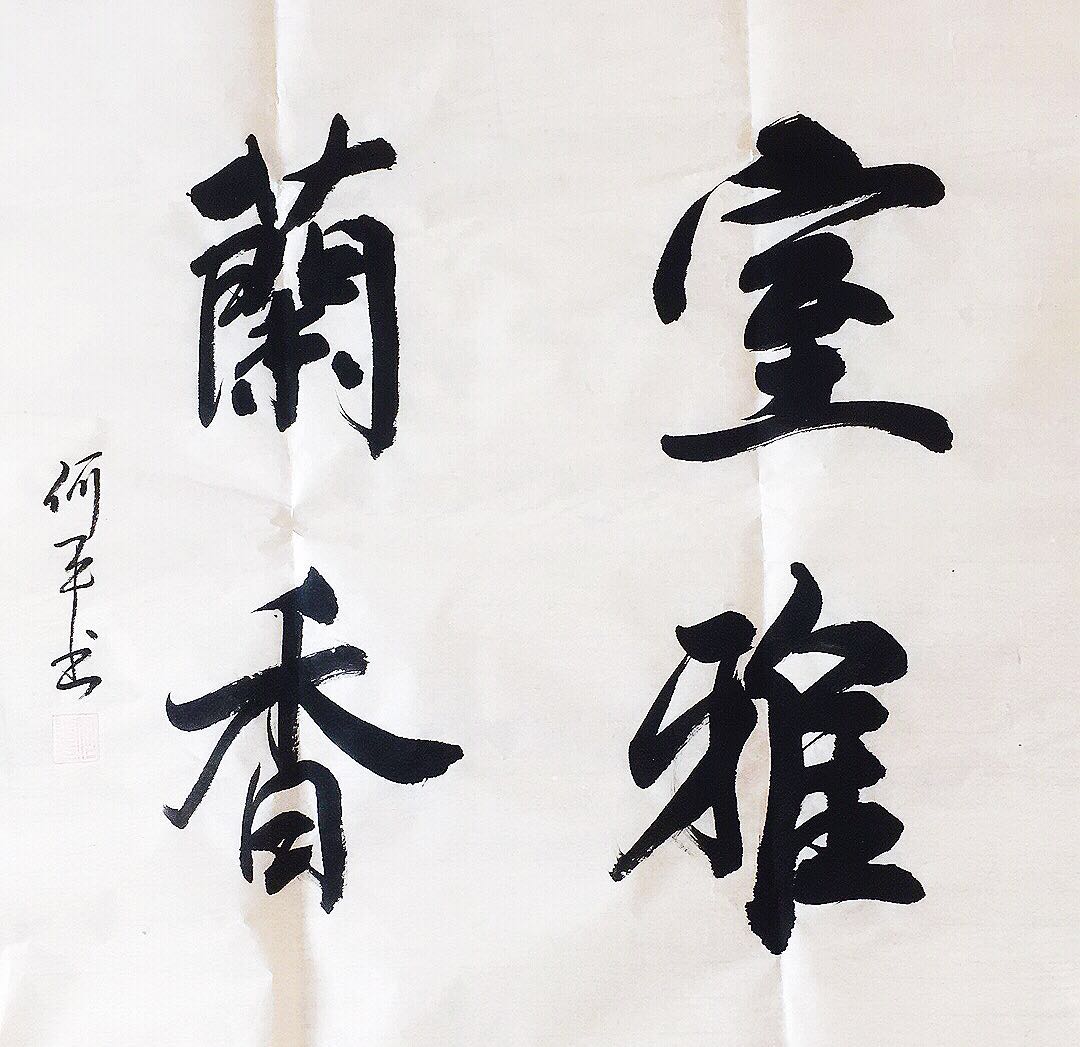 室雅
蘭香
何平书